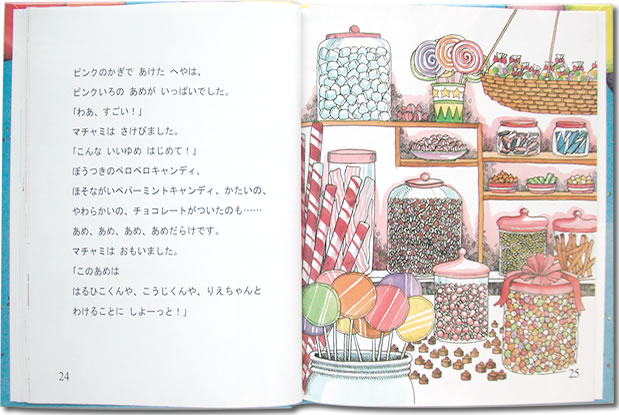 ピンクのかぎで あけた へやは、
ピンクいろの あめが いっぱいでした。
「わあ、すごい！」
マチャミは さけびました。
「こんな いいゆめ はじめて！」
ぼうつきのペロペロキャンディ、
ほそながいペパーミントキャンディ、かたいの、
やわらかいの、チョコレートがついたのも……
あめ、あめ、あめ、あめだらけです。
マチャミは おもいました。
「このあめは
はるひこくんや、こうじくんや、りえちゃんと
わけることに しよーっと！」
24
25